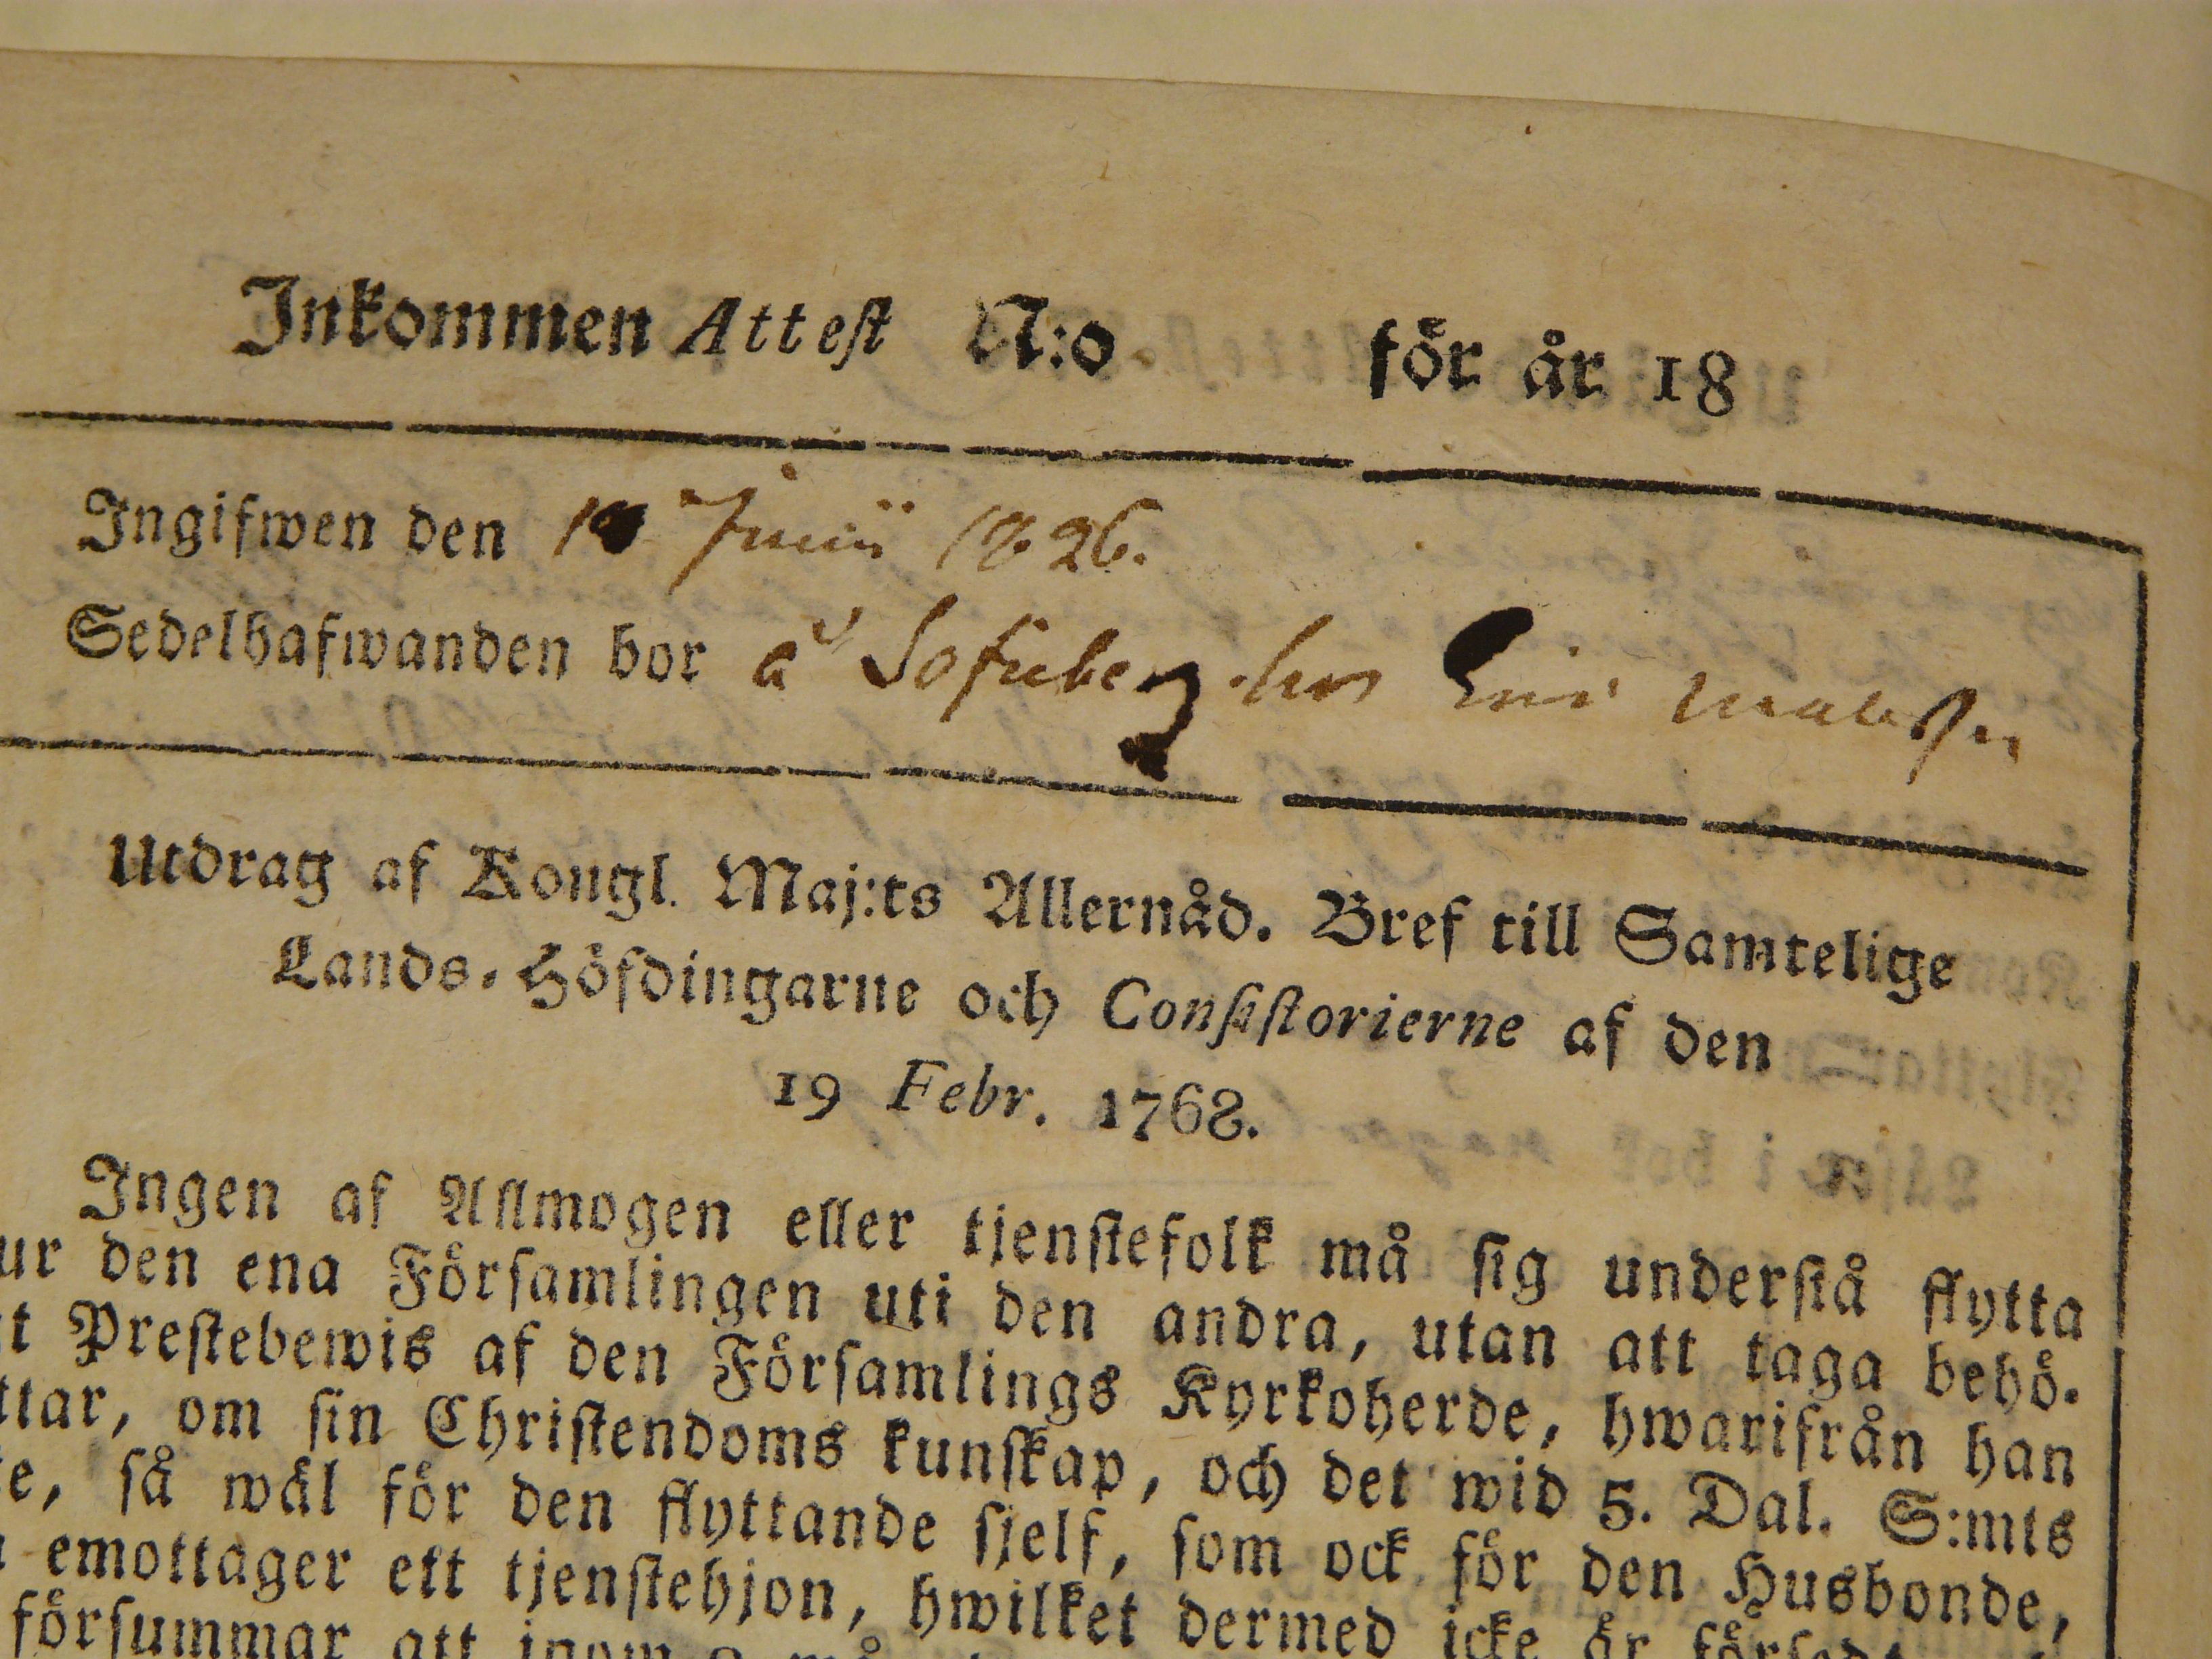 Inkommen Attest N:o för år 18
Ingifwen den Junii 1826.
Sedelhafwanden bor å hos
Utdrag af Kongl. Maj:ts Allernåd. Bref till Samtelige
Lands-Höfdingarne och Consistorierne af den
19 Febr. 1768.
Ingen af Allmogen eller tjenstefolk må sig understå flytta
ur den ena Församlingen uti den andra, utan att taga behö-
t Prestebewis af den Församlings Kyrkoherde, hwarifrån han
ttar, om sin Christendoms kunskap, och det wid 5. Dal. S:mts
e, så wäl för den flyttande sjelf, som ock för den Husbonde,
emottager ett tjenstehjon, hwilket dermed icke är försedt
försummar att inom